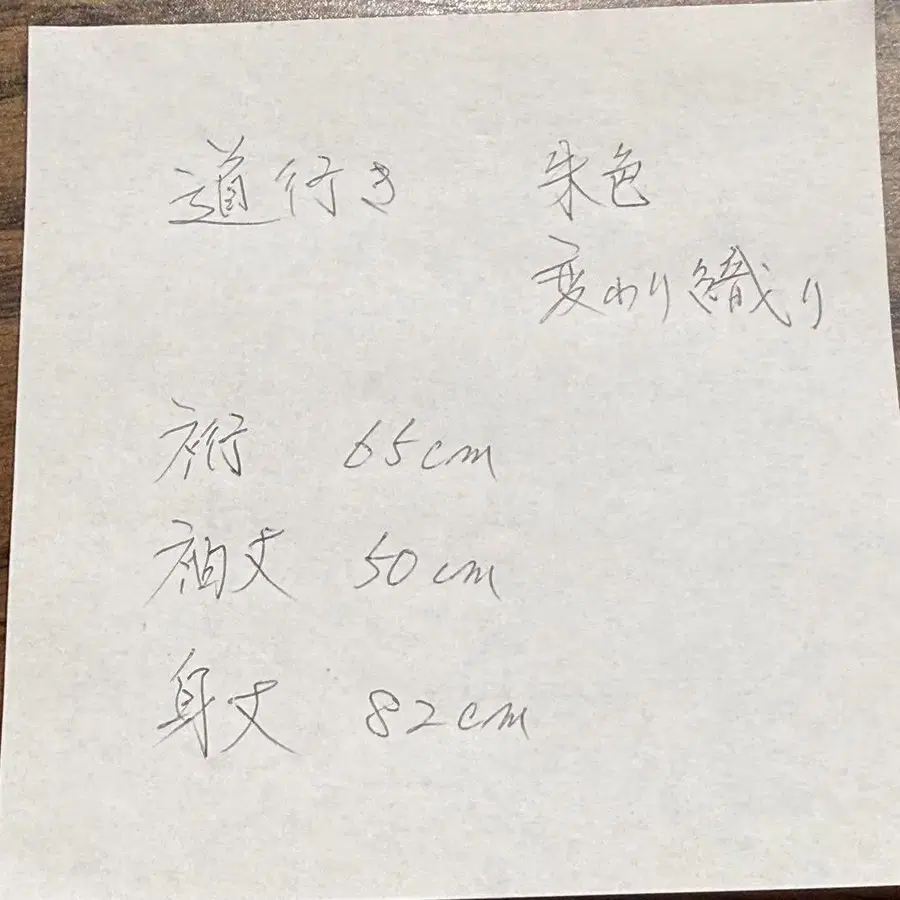 道行き 朱色
変わり織り
裄 65cm
袖丈 50cm
身丈 82cm